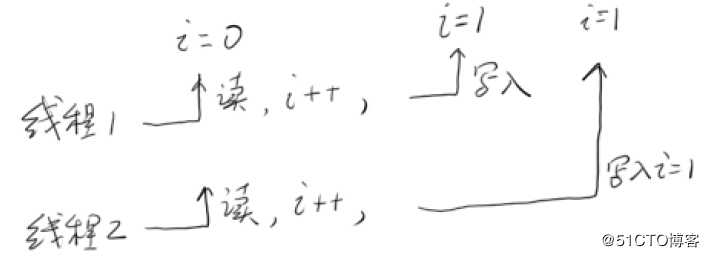 i=0 i=1 i=1
线程1 读, i++, 写入
写入i=1
线程2 读, i++,
@51CTO博客